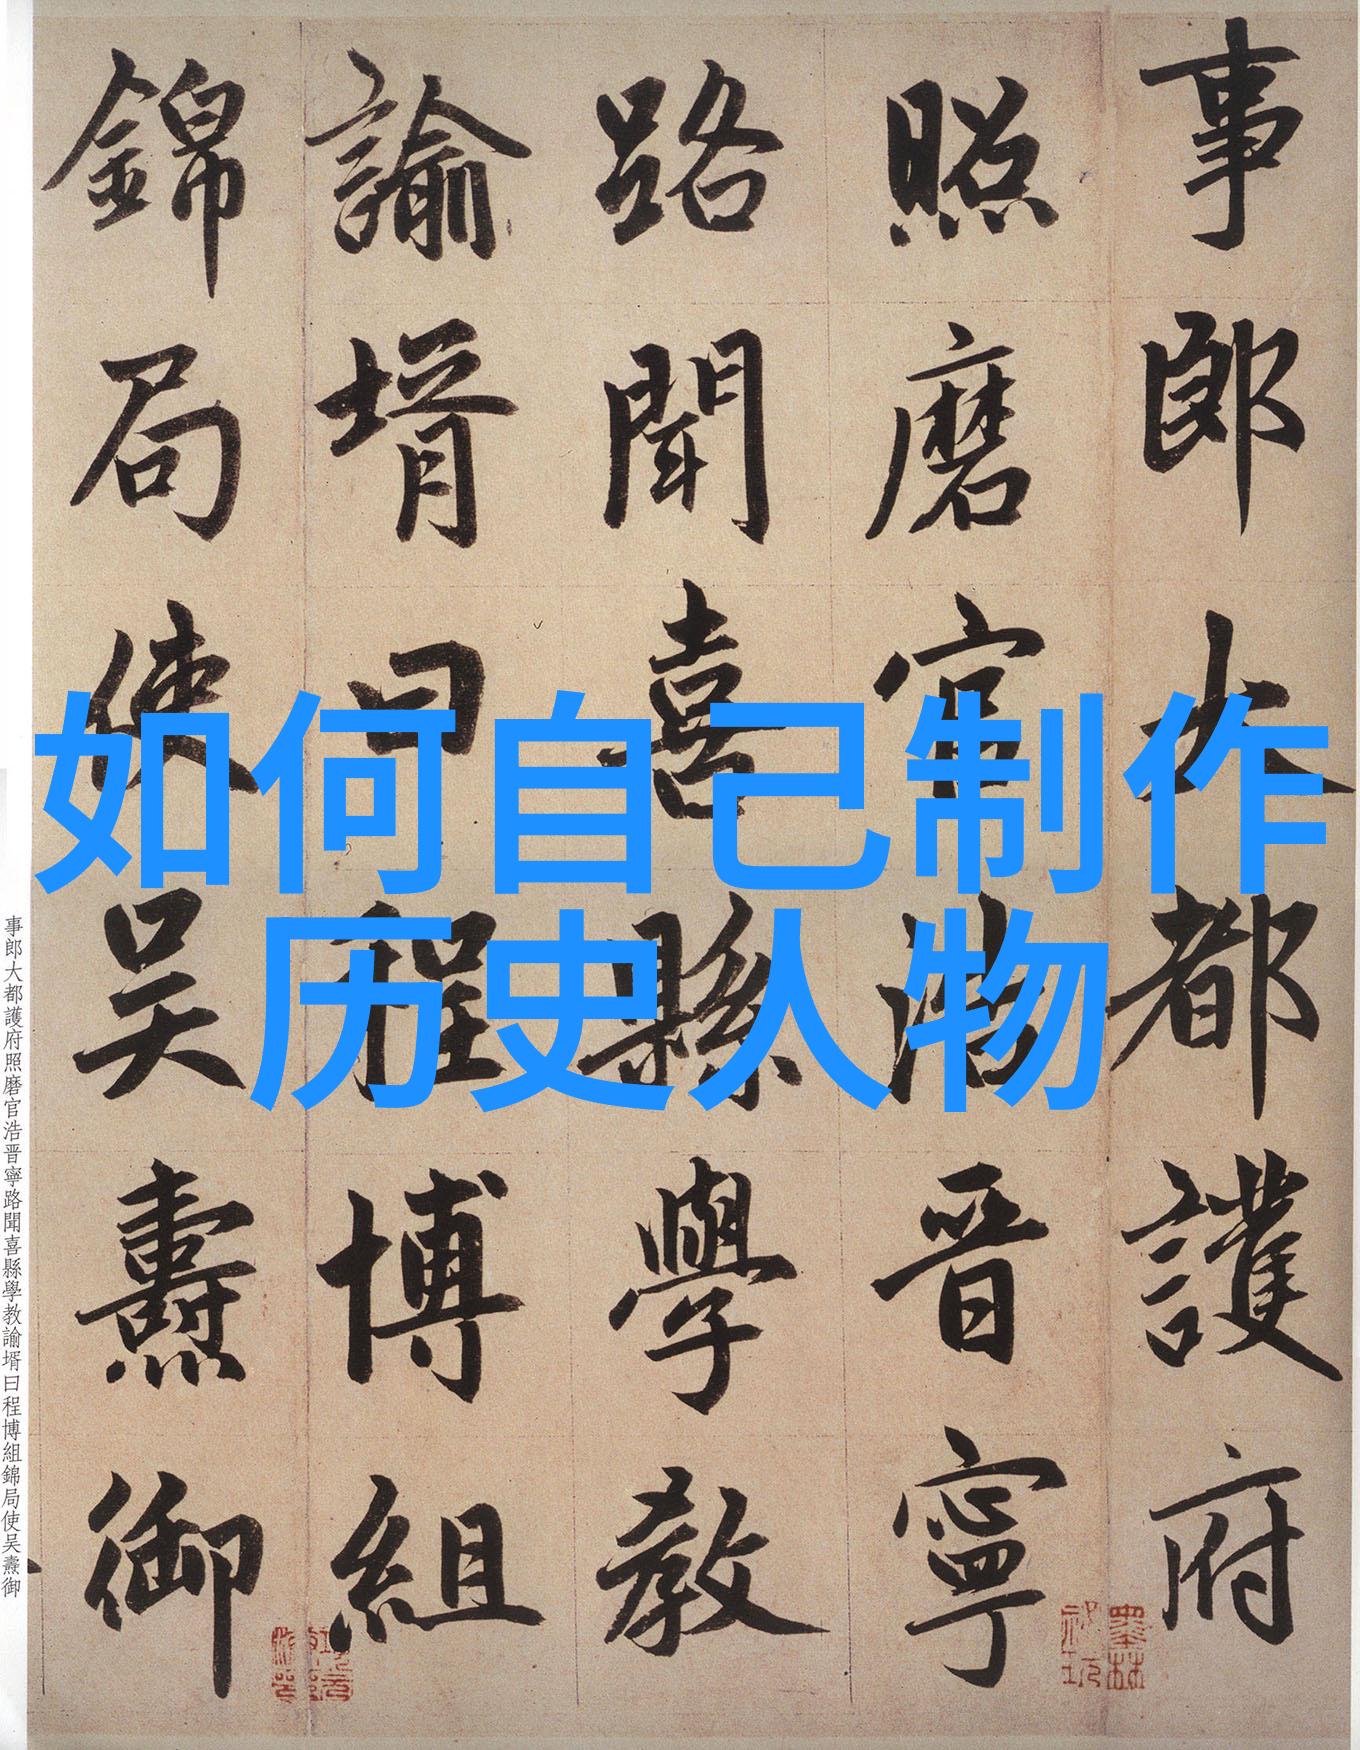 如何自己制作
历史人物
事郎大都護府
照磨官浩晋寧
路聞喜縣學教
諭壻曰程博組
錦局使吴燾御
事郎大都護府照磨官浩晋寧路聞喜縣學教諭壻曰程博組錦局使吴燾御